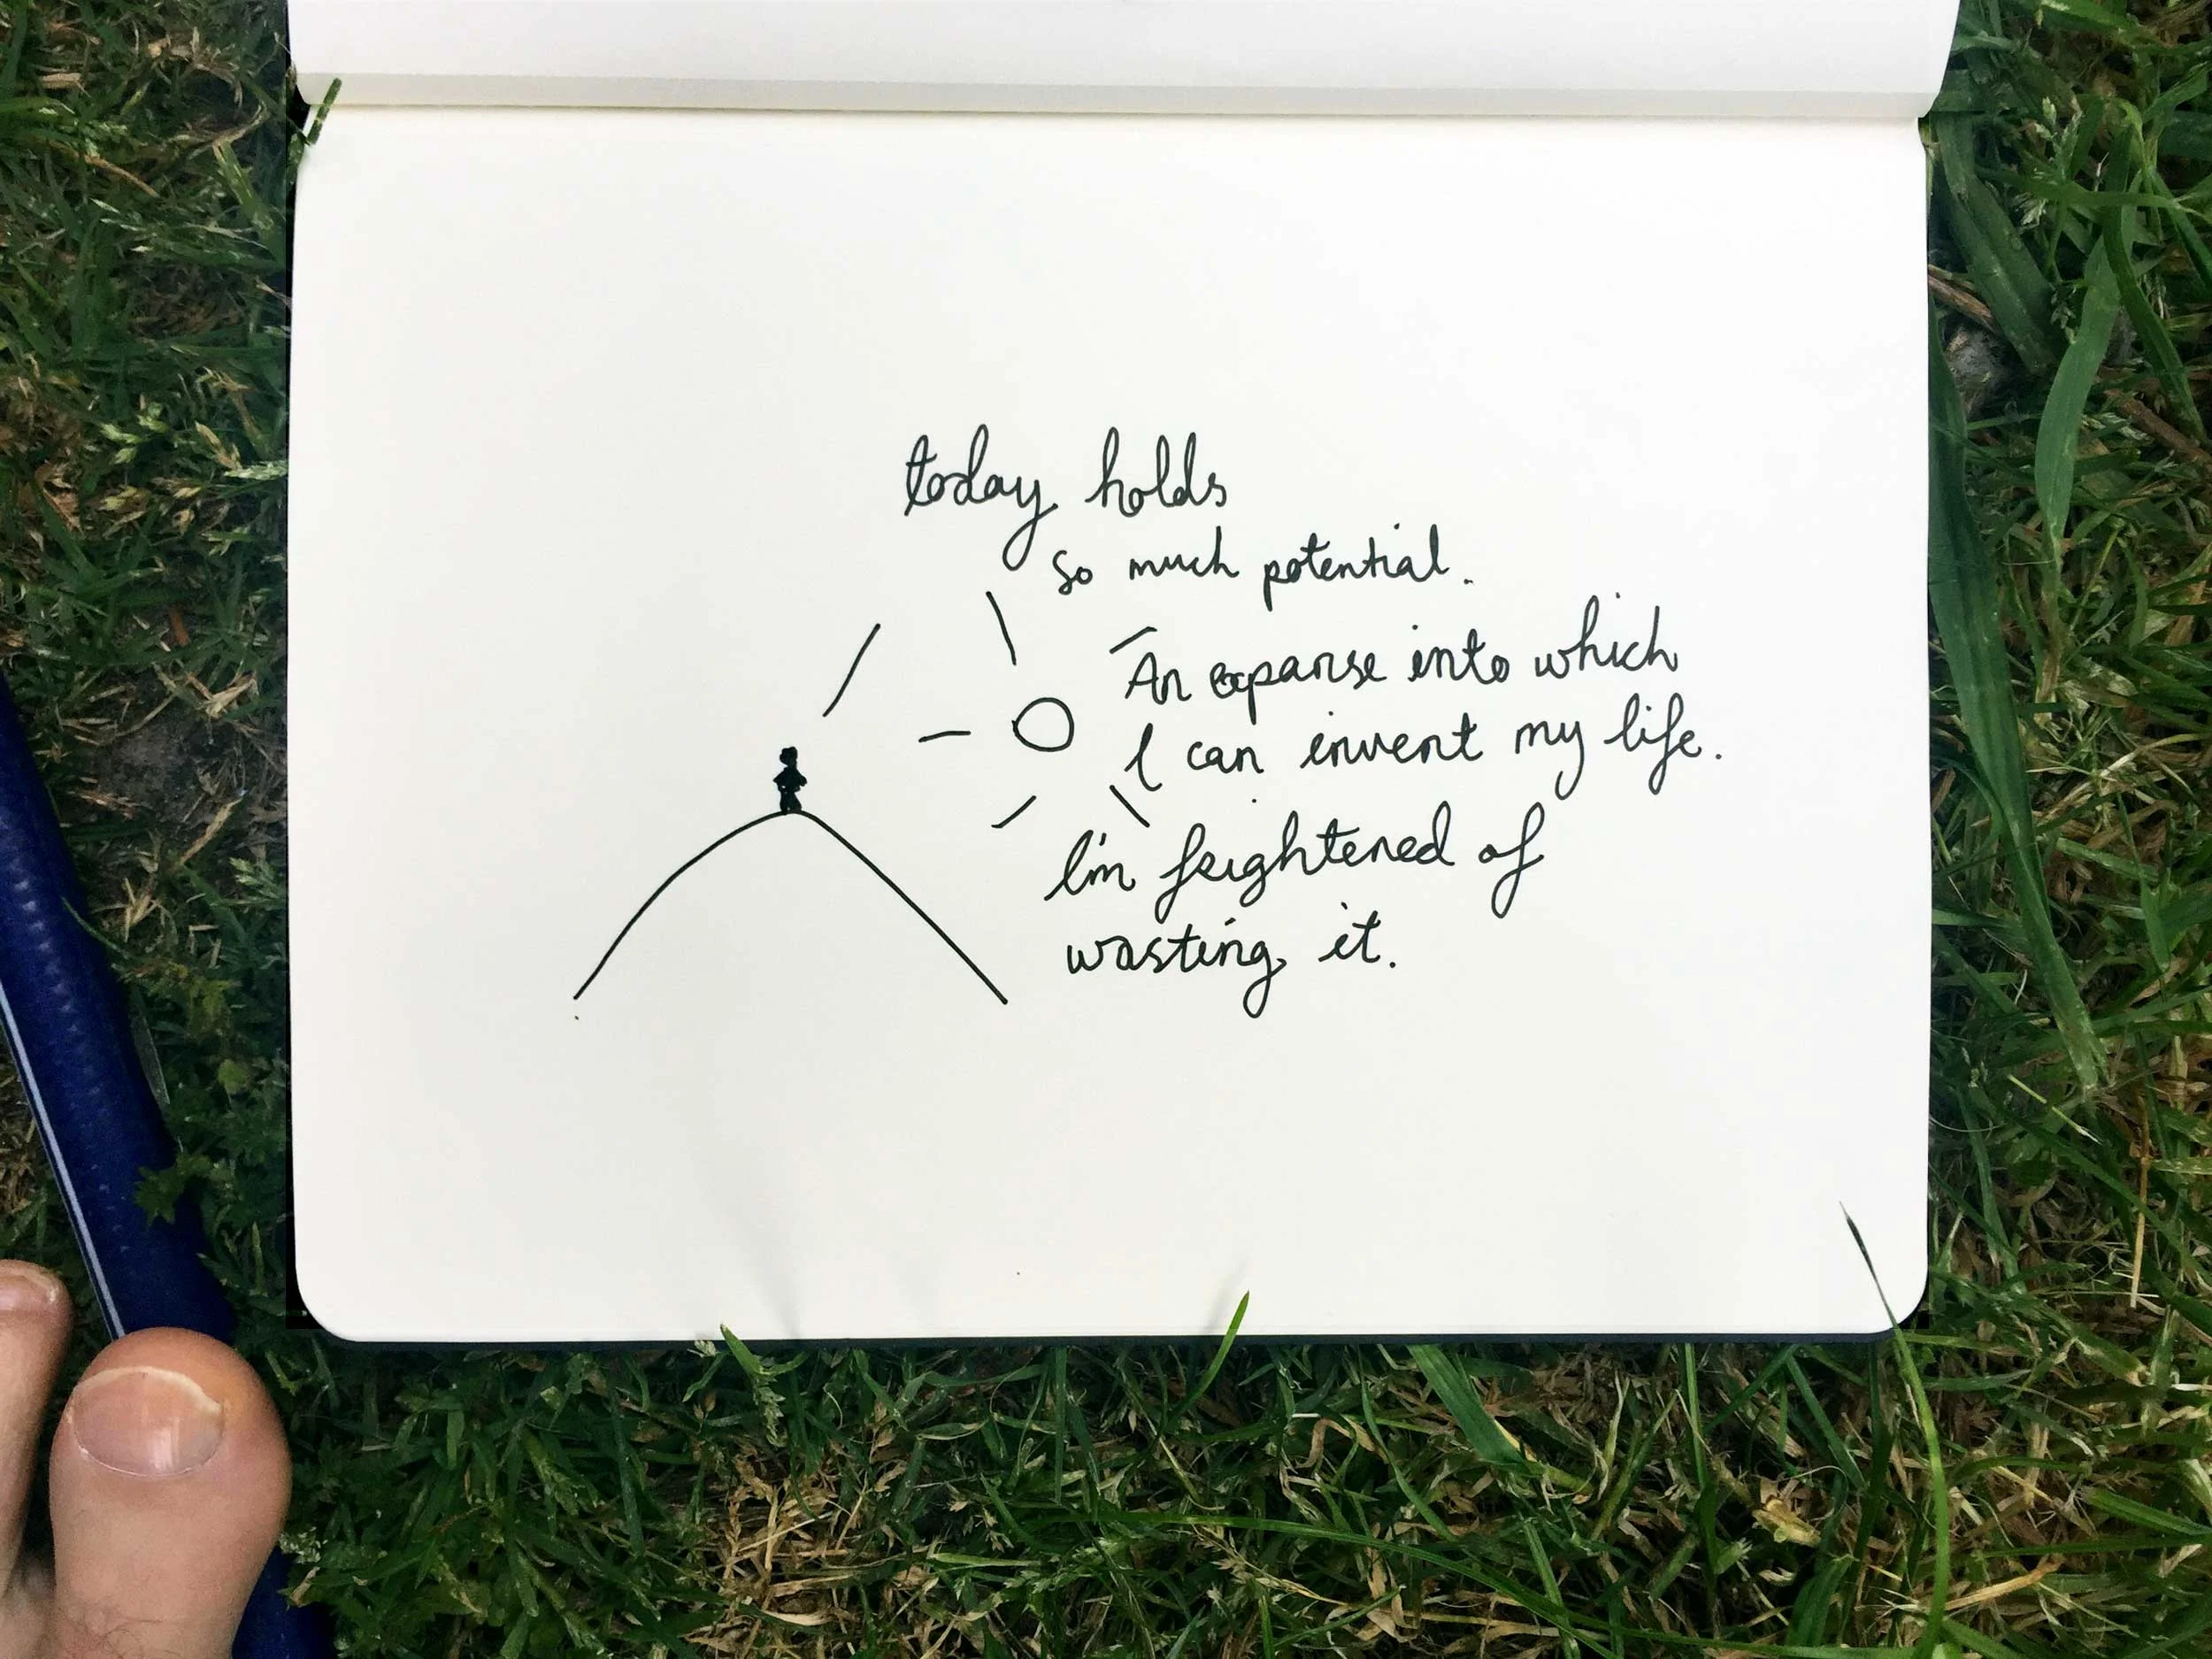 today holds
so much potential.
An expanse into which
I can invent my life.
I'm frightened of
wasting it.